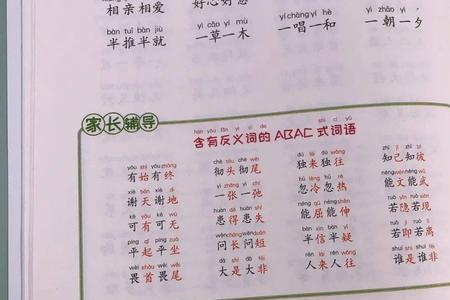 相亲相爱 好心好意
bàn tuī bàn jiù yì cǎo yí mù yí chàng yí hè yì zhāo yì
半推半就 一草一木 一唱一和 一朝一夕
家长辅导
hán yǒu fǎn yì cí de shì cí yǔ
含有反义词的 ABAC 式词语
yǒu shǐ yǒu zhōng chè tóu chè wěi dú lái dú wǎng zhī jǐ zhī bǐ
有始有终 彻头彻尾 独来独往 知己知彼
xiè tiān xiè dì yì zhāng yì chí hū lěng hū rè néng wén néng wǔ
谢天谢地 一张一弛 忽冷忽热 能文能武
kě yǒu kě wú huàn dé huàn shī néng qū néng shēn ruò yǐn ruò xiàn
可有可无 患得患失 能屈能伸 若隐若现
píng qǐ píng zuò wèn cháng wèn duǎn bàn xìn bàn yí ruò jí ruò lí
平起平坐 问长问短 半信半疑 若即若离
wèi shǒu wèi wěi dà shì dà fēi rén lái rén wǎng shuí shì shuí fēi
畏首畏尾 大是大非 人来人往 谁是谁非